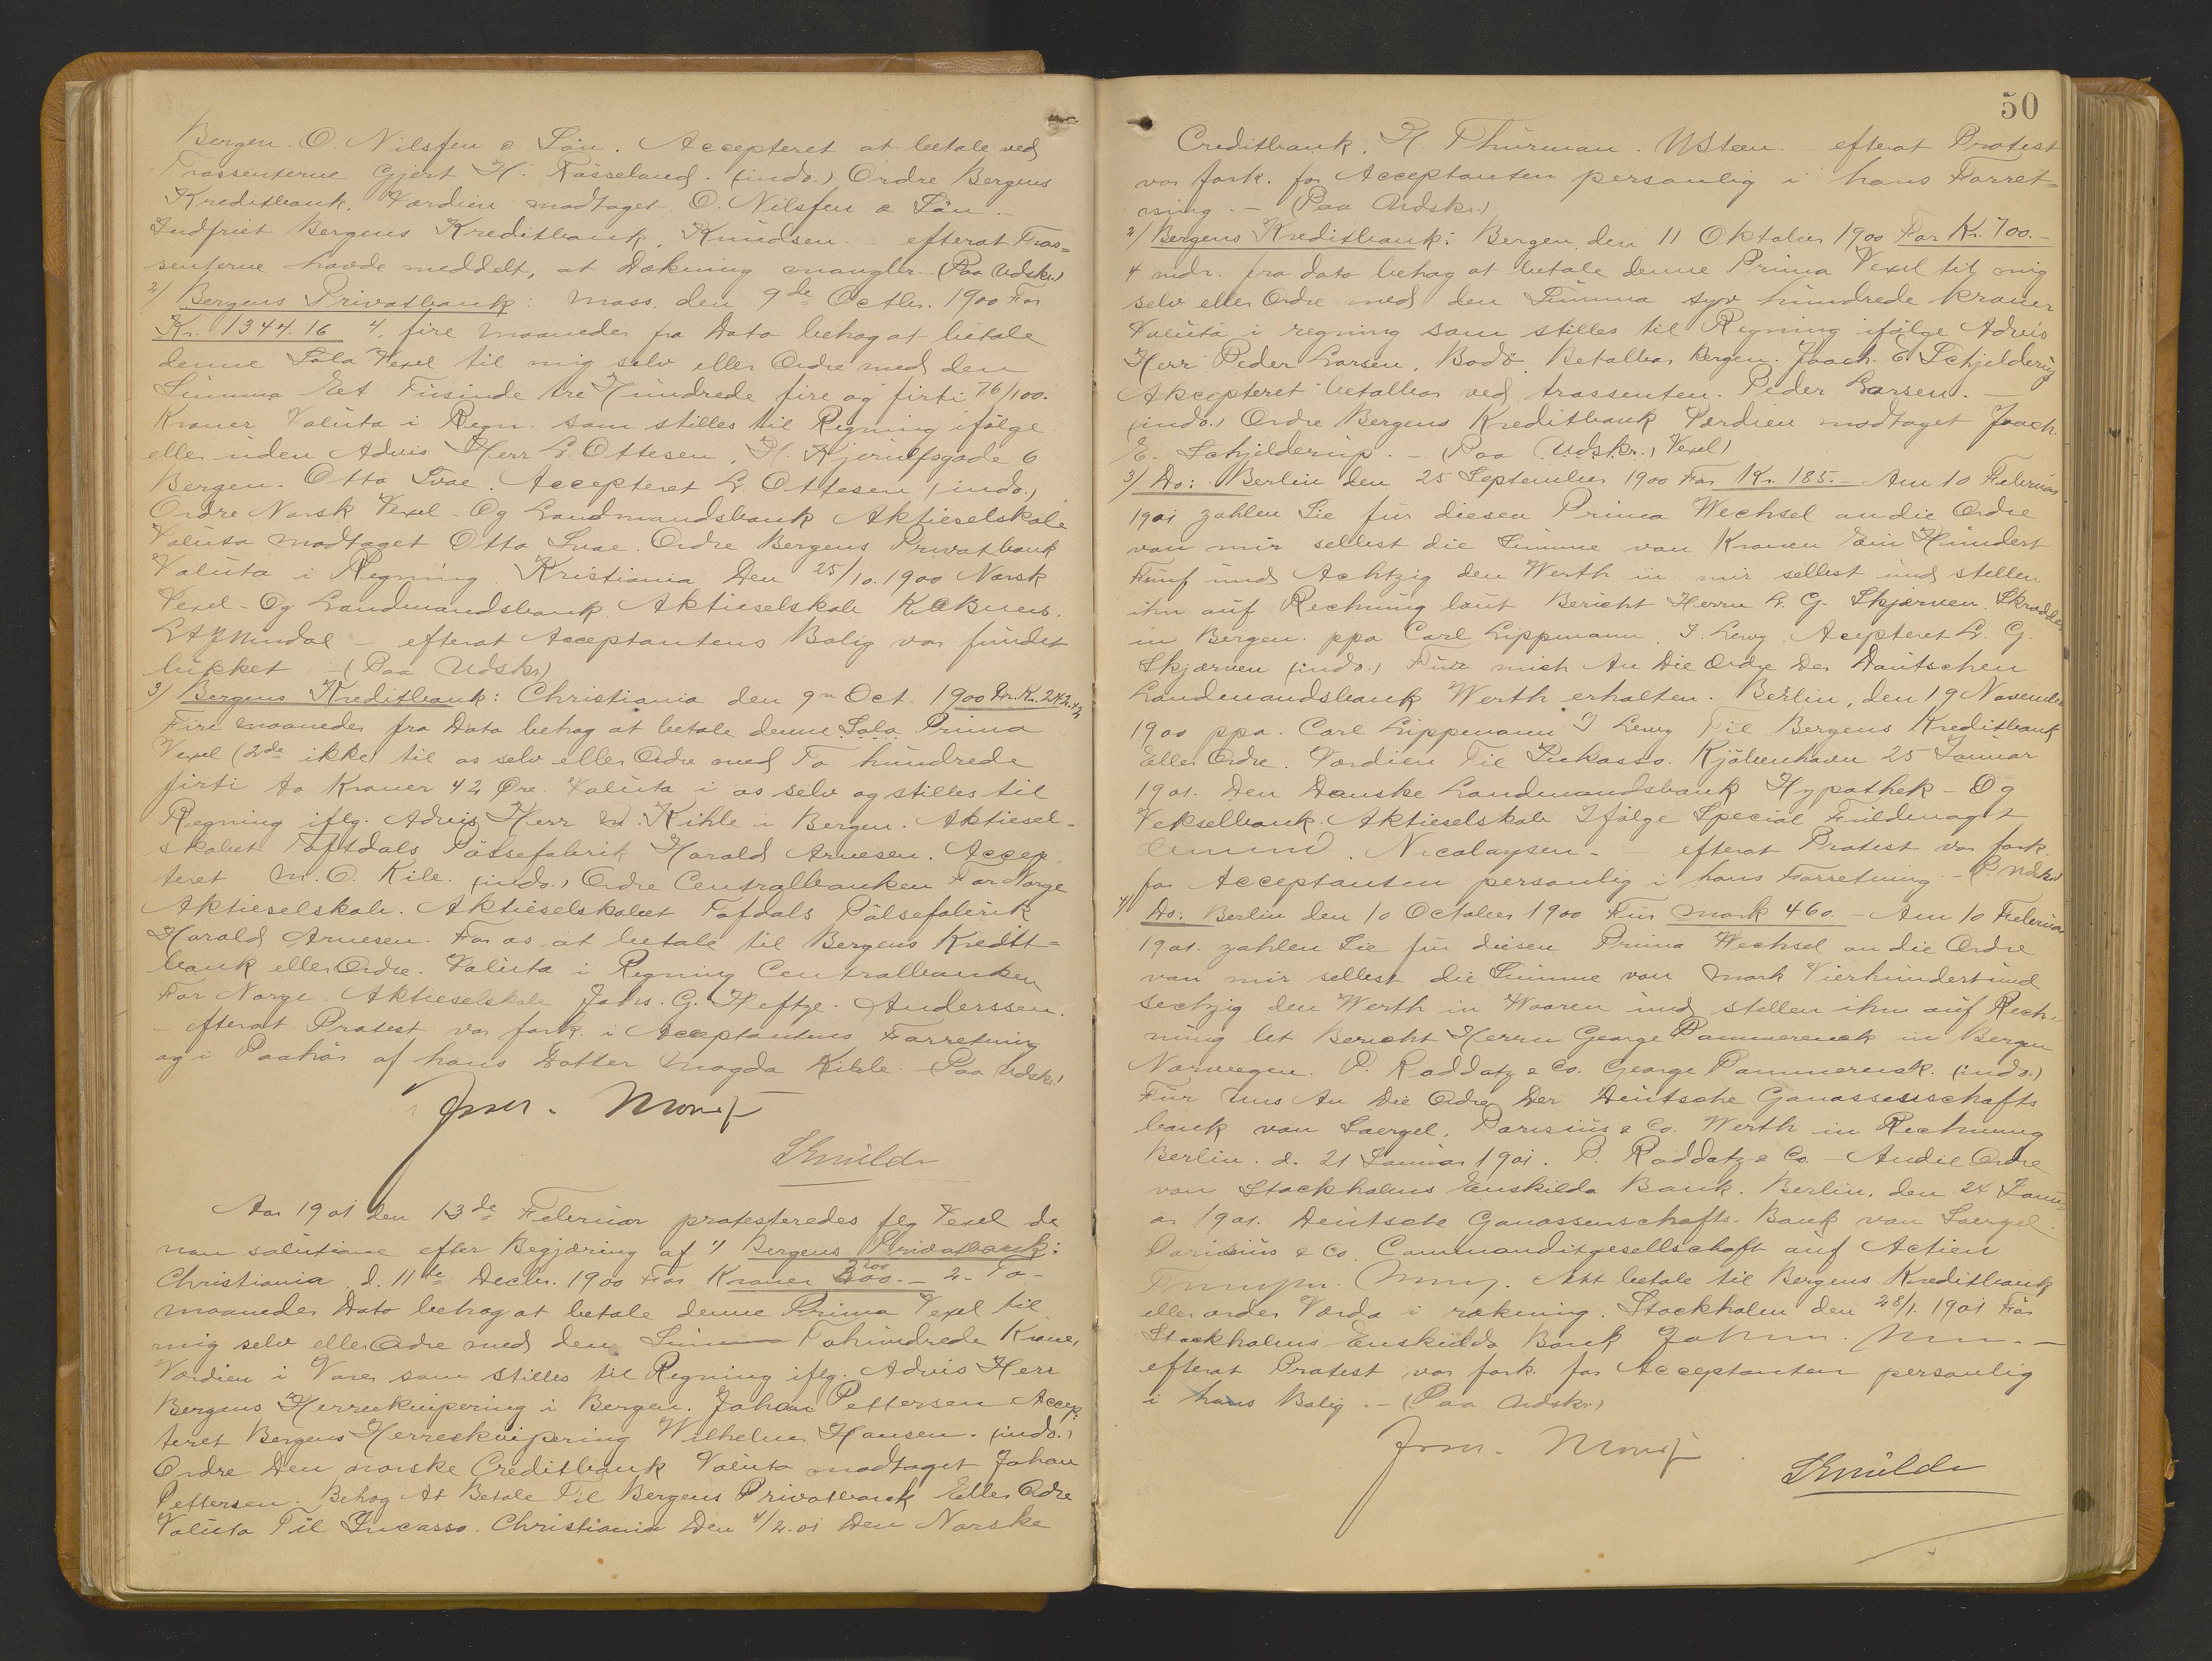 Bergen. O. Nilsfen & Sön. Accepteret at betale ved
Trassenterne Gjert H. Fässeland. (indo.) Ordre Bergens
Kreditbank. Værdien modtaget. O. Nilsfen & Sön. –
Indfriet Bergens Kreditbank. Knudsen. – efterat Tras=
senterne havde meddelt, at Dækning mangler. (Paa Udskr.)
2) Bergens Privatbank: Moss. den 9de Octbr. 1900 For
Kr. 1344.16 4. fire Maaneder fra Dato behag at betale
denne Sola Vexel til mig selv eller Ordre med den
Summa Et Tusinde tre Hundrede fire og firti 76/100.
Kroner Valuta i Regn. som stilles til Regning ifölge
eller uden Advis Herr L. Ottesen, H. Kjerulfsgade 6
Bergen. Otto Svae. Accepteret L. Ottesen (indo.)
Ordre Norsk Vexel- Og Landmandsbank Aktieselskab
Valuta modtaget Otto Svae. Ordre Bergens Privatbank
Valuta i Regning. Kristiania Den 25/10. 1900 Norsk
Vexel- Og Landmandsbank Aktieselskab
– efterat Acceptantens Bolig var fundet
lukket – (Paa Udskr)
3) Bergens Kreditbank: Christiania den 9de Oct. 1900 Kr. 242.42
Fire maaneder fra Dato behag at betale denne Sola Prima
Vexel (2de ikke) til os selv eller Ordre med To hundrede
firti to Kroner 42 Øre. Valuta i os selv og stilles til
Regning iflg. Advis Herr M. Kihle i Bergen. Aktiesel-
skabet Tofdals Pölsefabrik Harald Arnesen. Accep
teret M. O. Kile. (indo.) Ordre Centralbanken For Norge
Aktieselskab. Aktieselskabet Tofdals Pölsefabrik
Harald Arnesen. For os at betale til Bergens Kredit=
bank eller Ordre. Valuta i Regning Centralbanken
For Norge. Aktieselskab Johs. G. Heftye. Anderssen.
– efterat Protest var fork. i Acceptantens Forretning
og i Paahör af hans Datter Magda Kihle. – (Paa Udskr.)
Aar 1901 den 13de Februar protesteredes flg Vexel de
non solutione efter Begjæring af 1) Bergens Privatbank:
Christiania. d. 11te Decbr. 1900 For Kroner 200.– 2. To-
maaneder Dato behag at betale denne Prima Vexel til
mig selv eller Ordre med den Summa Tohundrede Kroner,
Værdien i Varer som stilles til Regning iflg. Advis Herr
Bergens Herreekvipering i Bergen. Johan Pettersen Accep=
teret Bergens Herreekvipering Wilhelm Hansen. (indo.)
Ordre Den norske Creditbank Valuta modtaget Johan
Pettersen. Behag At Betale Til Bergens Privatbank Eller Ordre
Valuta Til Incasso. Christiania Den 4/2.01 Den Norske
50
Creditbank. H. Thurman. efterat Protest
var fork. for Acceptanten personlig i hans Forret=
ning. – (Paa Udskr.)
2) Bergens Kreditbank: Bergen den 11 Oktober 1900 For Kr. 700.–
4 mdr. fra dato behag at betale denne Prima Vexel til mig
selv eller Ordre med den Summa syv hundrede kroner
Valuta i regning som stilles til Regning ifölge Advis
Herr Peder Larsen, Bodö. Betalbar Bergen. Joach. E. Schjelderup
Akcepteret betalbar ved trassenten. Peder Larsen. –
(indo.) Ordre Bergens Kreditbank Værdien modtaget Joach.
E. Schjelderup. – (Paa Udskr., Vexel)
3) Do: Berlin den 25 September 1900 Für Kr. 185.– Am 10 Februar
1901 zahlen Sie für diesen Prima Wechsel an die Ordre
von mir selbst die Summe von Kronen Ein Hundert
Fünf und Achtzig den Werth in mir selbst und stellen
ihn auf Rechnung laut Bericht Herrn L. G. Skjærven. Skrædder
in Bergen. ppa Carl Lippmann, J. Lewy. Acepteret L. G.
Skjærven (indo.) Für mich An Die Ordre Der Dänischen
Landmandsbank Werth erhalten. Berlin, den 19 November
1900 ppa. Carl Lippmann J Lewy Til Bergens Kreditbank
Eller Ordre. Værdien Til Inkasso. Kjöbenhavn 25 Januar
1901. Den Danske Landmandsbank Hypothek- Og
Vekselbank. Aktieselskab Ifölge Special Fuldmagt
Nicolaysen. – efterat Protest var fork.
for Acceptanten personlig i hans Forretning. – (P Udskr)
4) Do: Berlin den 10 October 1900 Für Mark 460. – Am 10 Februar
1901. zahlen Sie für diesen Prima Wechsel an die Ordre
von mir selbst die Summe von Mark Vierhundertund
sechzig den Werth in Waaren und stellen ihn auf Rech-
nung lt Bericht Herrn George Pammerenck in Bergen
Norwegen. P. Raddatz & Co. George Pammerensk. (indo.)
Für Uns An Die Ordre Der Deutsche Genossenschafts
bank von Soergel, Parisius & Co. Werth in Rechnung
Berlin. d. 21 Januar 1901. P. Raddatz & Co – An die Ordre
von Stockholms Enskilda Bank. Berlin, den 24 Janu
ar 1901. Deutsche Genossenschafts-Bank von Soergel.
Parisius & Co. Commanditgesellschaft auf Actien
Att betale til Bergens Kreditbank
eller order Värdo i räkning. Stockholm den 28/1. 1901 För
Stockholms Enskilda Bank –
efterat Protest var fork. for Acceptanten personlig
i hans Bolig. – (Paa Udskr.)